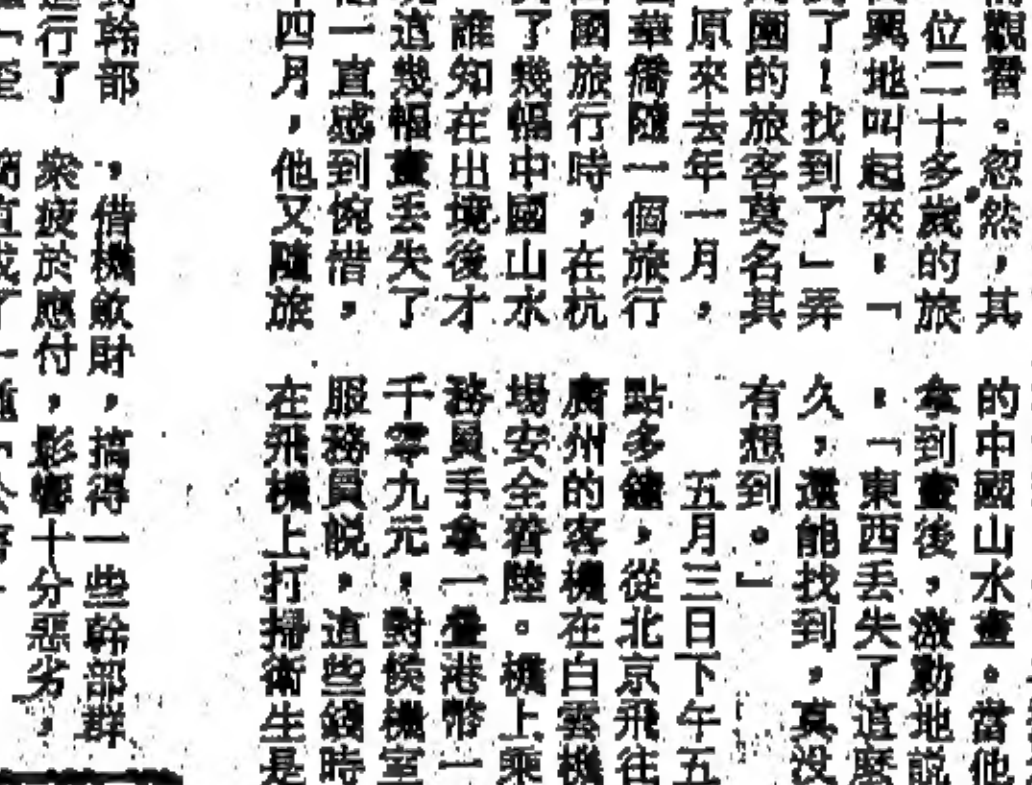 觀看。忽然,其
位二十多歲的旅
興地叫起來,「
了!找到了」弄
團的旅客莫名其
原來去年一月,
華僑隨一個旅行
國旅行時,在杭
了幾幅中國山水
誰知在出境後才
這幾幅畫丟失了
一直感到惋惜,
四月,他又隨旅
的中國山水畫。當他
拿到畫後,激動地説
,「東西丟失了這麼
久,還能找到,真没
有想到。」
五月三日下午五
點多鐘,從北京飛往
廣州的客機在白雲機
場安全着陸。機上乘
務員手拿一疊港幣一
千零九元,對候機室
服務員説,這些錢時
在飛機上打掃衛生是
幹部
行了
,借機斂財,搞得一些幹部群
衆疲於應付,影響十分惡劣,